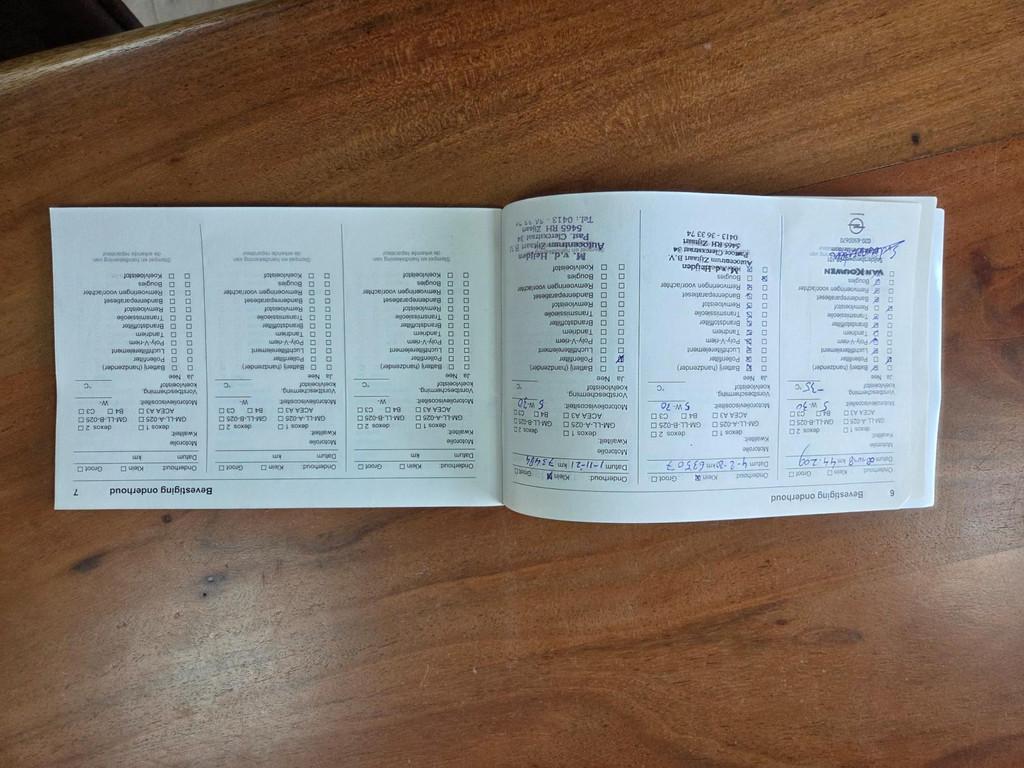 6
Bevestiging onderhoud
Datum km 44.209
Motorolie
Kwaliteit:
☐ dexos 1 ☐ dexos 2
☐ GM-LL-A-025 ☐ GM-LL-B-025
☐ ACEA A3 ☐ B4 ☐ C3
Motorolieviscositeit:
5 W- 30
Vorstbescherming
koelvloeistof
-35 °C
Ja Nee
Batterij (handzender)
Pollenfilter
Luchtfilterelement
Poly-V-riem
Tandriem
Brandstoffilter
Transmissieolie
Remvloeistof
Bandenreparatieset
Remvoeringen voor/achter
Bougies
VAN KOUWEN
Onderhoud: Klein ☒ Groot ☐
Datum 4-2- km 63507
Motorolie
Kwaliteit:
☐ dexos 1 ☐ dexos 2
☐ GM-LL-A-025 ☐ GM-LL-B-025
☐ ACEA A3 ☐ B4 ☐ C3
Motorolieviscositeit:
5 W-
Vorstbescherming
koelvloeistof
°C
Ja Nee
Batterij (handzender)
Pollenfilter
Luchtfilterelement
Poly-V-riem
Tandriem
Brandstoffilter
Transmissieolie
Remvloeistof
Bandenreparatieset
Remvoeringen voor/achter
Bougies
M v.d. Heijden
Autocentrum Zijtaart B.V.
Pastoor Clerckxstraat 34
5465 RH Zijtaart
0413 - 36 33 74
Onderhoud: Klein ☒ Groot ☐
Datum 1-11-21 km 73484
Motorolie
Kwaliteit:
☐ dexos 1 ☐ dexos 2
☐ GM-LL-A-025 ☐ GM-LL-B-025
☐ ACEA A3 ☐ B4 ☐ C3
Motorolieviscositeit:
5 W- 30
Vorstbescherming
koelvloeistof
°C
Ja Nee
Batterij (handzender)
Pollenfilter
Luchtfilterelement
Poly-V-riem
Tandriem
Brandstoffilter
Transmissieolie
Remvloeistof
Bandenreparatieset
Remvoeringen voor/achter
Bougies
Koelvloeistof
M v.d. Heijden
Autocentrum Zijtaart B.V.
Past. Clerckxstraat 34
5465 RH Zijtaart
Tel.: 0413 -
Bevestiging onderhoud
7
Onderhoud: ☐ Klein ☐ Groot
Datum km
Motorolie
Kwaliteit:
☐ dexos 1 ☐ dexos 2
☐ GM-LL-A-025 ☐ GM-LL-B-025
☐ ACEA A3 ☐ B4 ☐ C3
Motorolieviscositeit:
W-
Vorstbescherming
koelvloeistof
°C
Ja Nee
Batterij (handzender)
Pollenfilter
Luchtfilterelement
Poly-V-riem
Tandriem
Brandstoffilter
Transmissieolie
Remvloeistof
Bandenreparatieset
Remvoeringen voor/achter
Bougies
Koelvloeistof
Stempel en handtekening van
de erkende reparateur
Onderhoud: ☐ Klein ☐ Groot
Datum km
Motorolie
Kwaliteit:
☐ dexos 1 ☐ dexos 2
☐ GM-LL-A-025 ☐ GM-LL-B-025
☐ ACEA A3 ☐ B4 ☐ C3
Motorolieviscositeit:
W-
Vorstbescherming
koelvloeistof
°C
Ja Nee
Batterij (handzender)
Pollenfilter
Luchtfilterelement
Poly-V-riem
Tandriem
Brandstoffilter
Transmissieolie
Remvloeistof
Bandenreparatieset
Remvoeringen voor/achter
Bougies
Koelvloeistof
Stempel en handtekening van
de erkende reparateur
Onderhoud: ☐ Klein ☐ Groot
Datum km
Motorolie
Kwaliteit:
☐ dexos 1 ☐ dexos 2
☐ GM-LL-A-025 ☐ GM-LL-B-025
☐ ACEA A3 ☐ B4 ☐ C3
Motorolieviscositeit:
W-
Vorstbescherming
koelvloeistof
°C
Ja Nee
Batterij (handzender)
Pollenfilter
Luchtfilterelement
Poly-V-riem
Tandriem
Brandstoffilter
Transmissieolie
Remvloeistof
Bandenreparatieset
Remvoeringen voor/achter
Bougies
Koelvloeistof
Stempel en handtekening van
de erkende reparateur